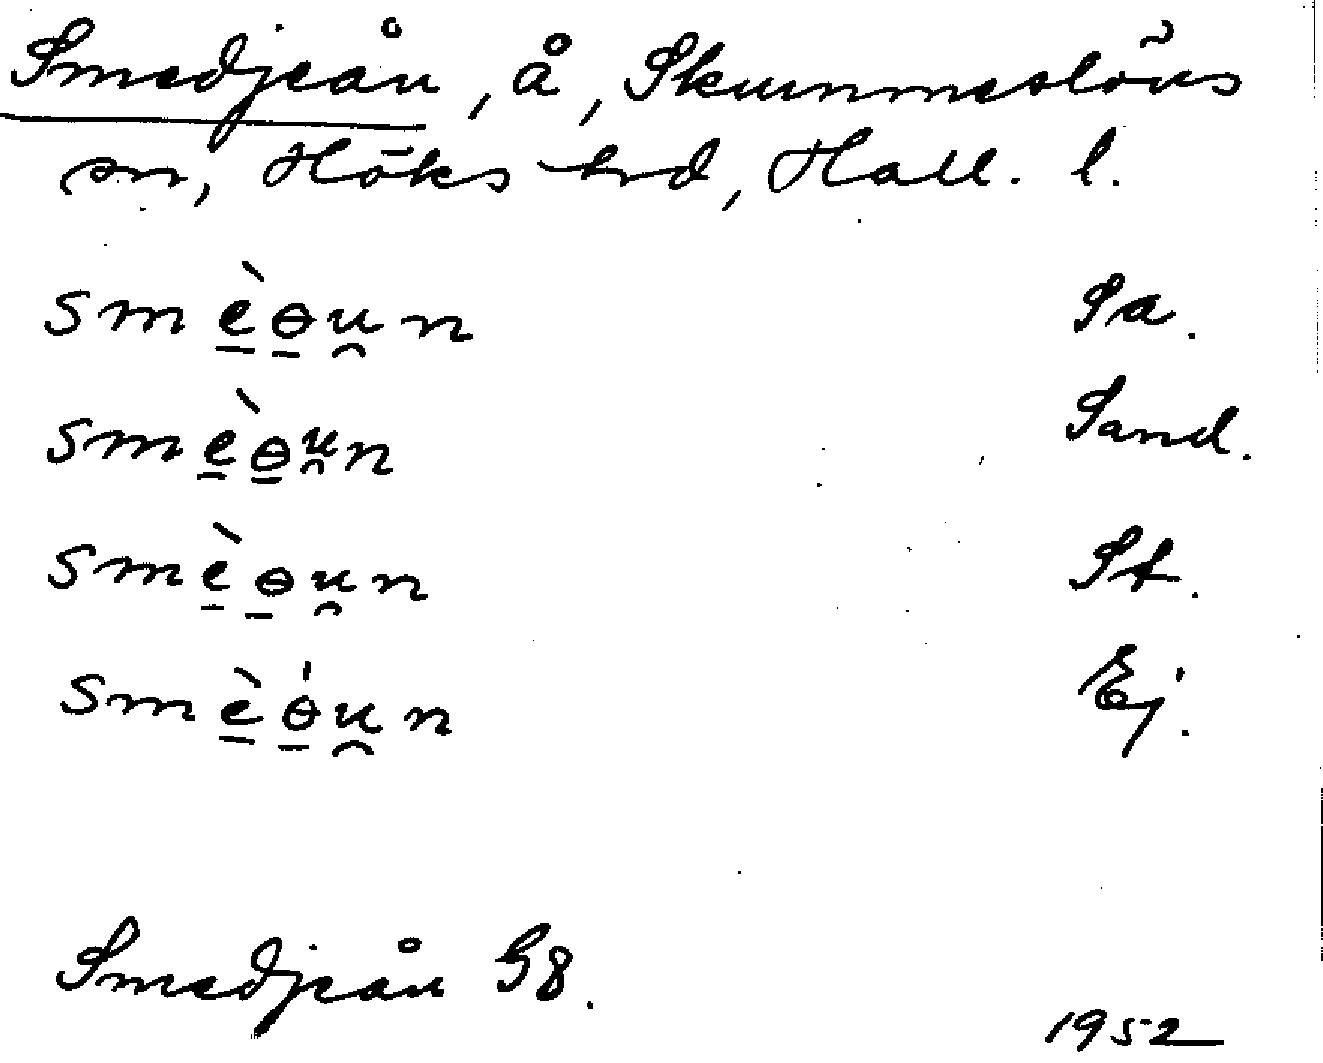 Smedjeån, å, Skummeslövs
sn, Höks hrd, Hall. l.
smè̱ɵ̱u̯n Sa.
smè̱ɵ̱u̯n Sand.
smè̱ɵ̱u̯n St.
smè̱ɵ̱́u̯n Ej.
Smedjeån G8.
1952